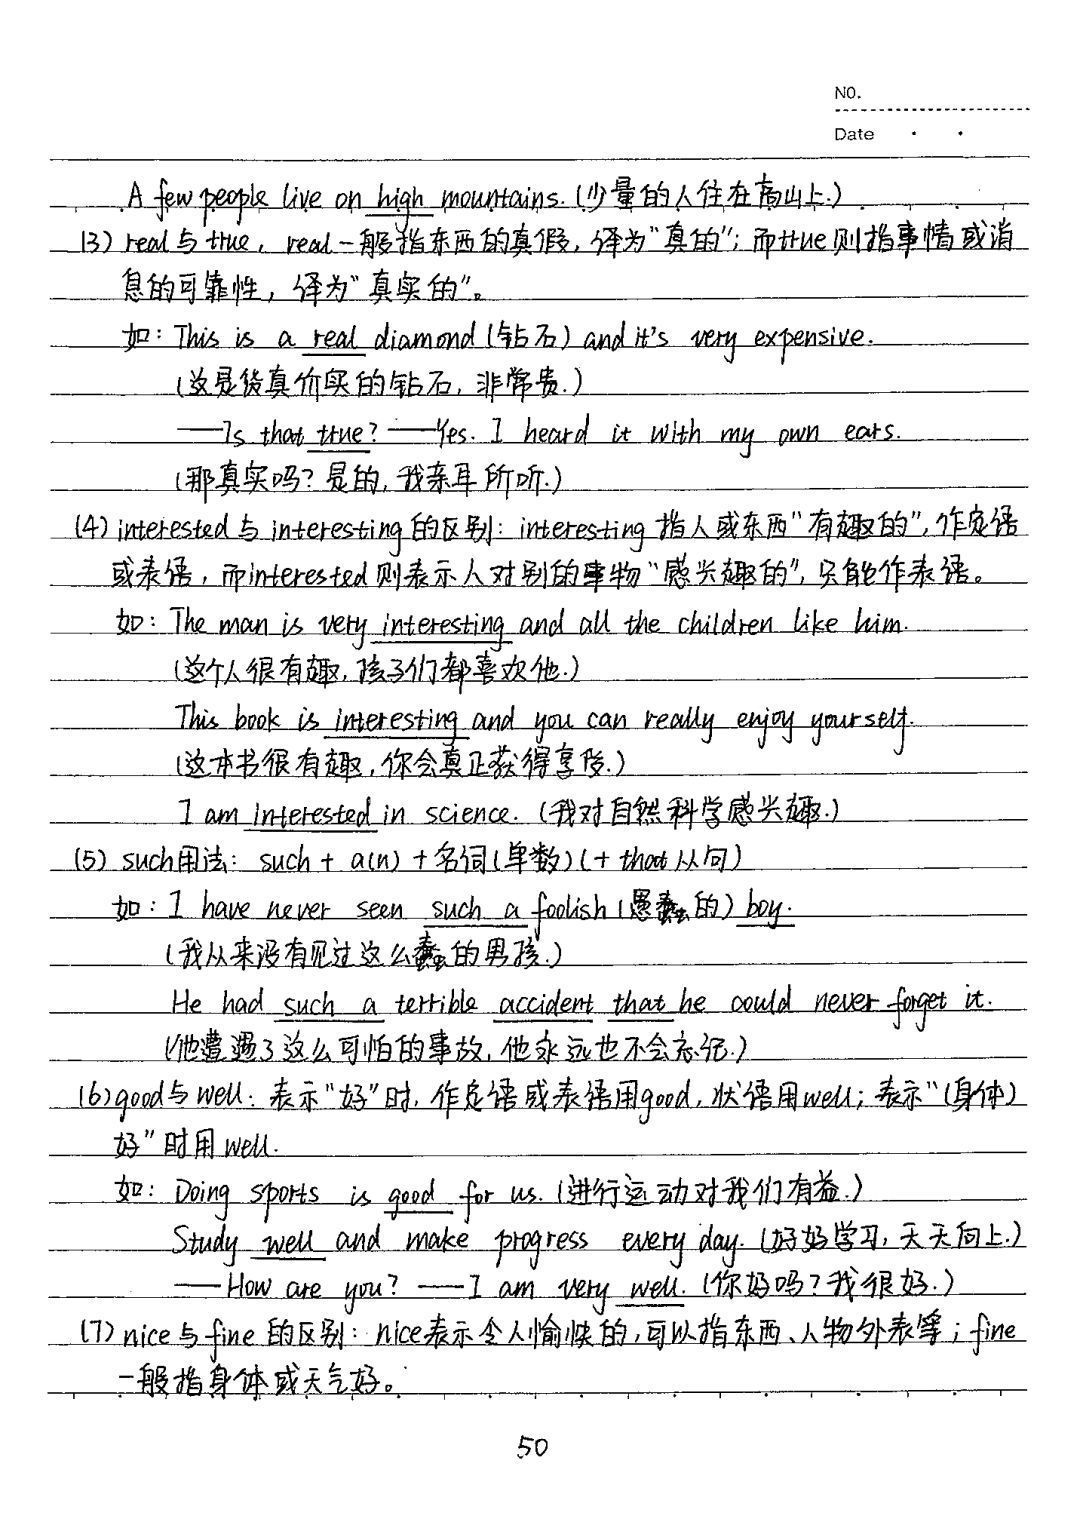 NO.
Date
A few people live on high mountains. (少量的人住在高山上.)
(3) real 与 true, real 一般指东西的真假, 译为"真的"; 而true则指事情或消
息的可靠性, 译为"真实的"。
如: This is a real diamond (钻石) and it's very expensive.
(这是货真价实的钻石, 非常贵.)
——Is that true? ——Yes. I heard it with my own ears.
(那真实吗? 是的, 我亲耳所听.)
(4) interested 与 interesting 的区别: interesting 指人或东西"有趣的", 作定语
或表语, 而interested 则表示人对别的事物"感兴趣的", 只能作表语。
如: The man is very interesting and all the children like him.
(这个人很有趣, 孩子们都喜欢他.)
This book is interesting and you can really enjoy yourself.
(这本书很有趣, 你会真正获得享受.)
I am interested in science. (我对自然科学感兴趣.)
(5) such用法: such + a(n) + 名词(单数) (+ that 从句)
如: I have never seen such a foolish (愚蠢的) boy.
(我从来没有见过这么蠢的男孩.)
He had such a terrible accident that he could never forget it.
(他遭遇了这么可怕的事故, 他永远也不会忘记.)
(6) good 与 well: 表示"好"时, 作定语或表语用good, 状语用well; 表示"(身体)
好"时用 well.
如: Doing sports is good for us. (进行运动对我们有益.)
Study well and make progress every day. (好好学习, 天天向上.)
——How are you? ——I am very well. (你好吗? 我很好.)
(7) nice 与 fine 的区别: nice表示令人愉快的, 可以指东西、人物外表等; fine
一般指身体或天气好。
50